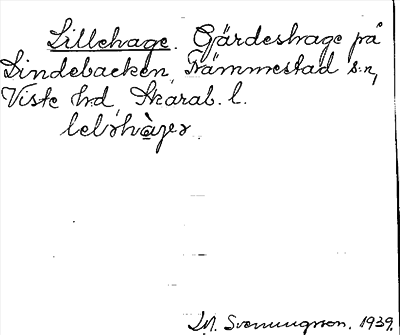 Lillehage. Gjärdeshage på
Lindebacken, Främmestad s:n,
Viste hd, Skarab. l.
M. Svenungsson. 1939.